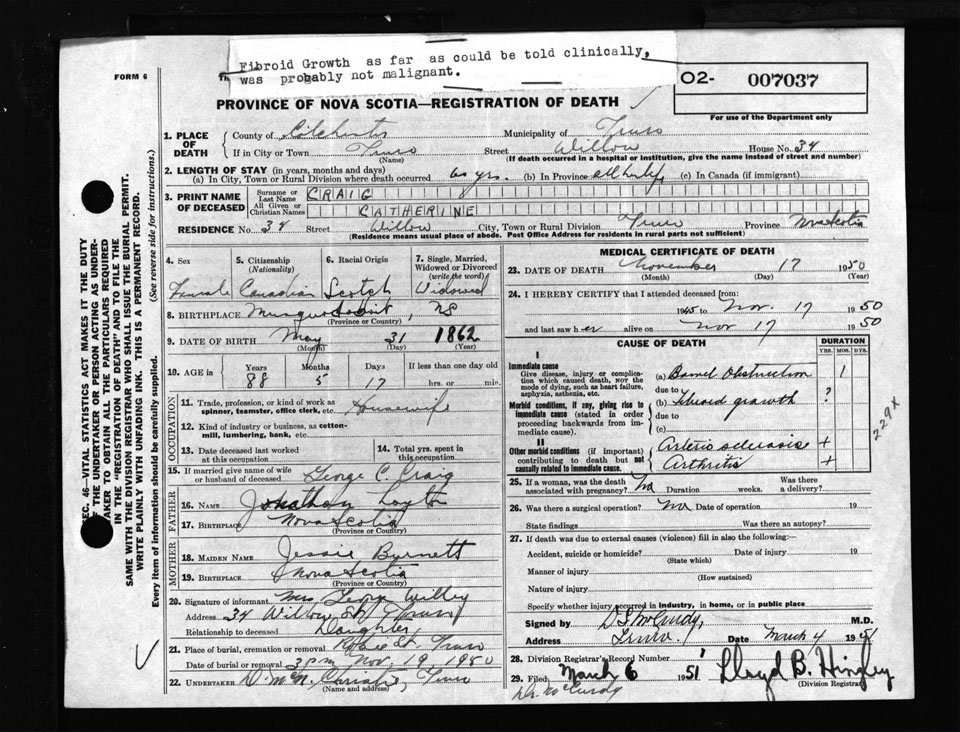 Fibroid Growth as far as could be told clinically,
was probably not malignant.
FORM 6
O2- 007037
For use of the Department only
PROVINCE OF NOVA SCOTIA—REGISTRATION OF DEATH
1. PLACE OF DEATH
County of Colchester Municipality of Truro
If in City or Town Truro Street Willow House No. 34
(Name) (If death occurred in a hospital or institution, give the name instead of street and number)
2. LENGTH OF STAY (in years, months and days)
(a) In City, Town or Rural Division where death occurred 60 yrs. (b) In Province all her life (c) In Canada (if immigrant)
3. PRINT NAME OF DECEASED
Surname or Last Name CRAIG
All Given or Christian Names CATHERINE
RESIDENCE No. 34 Street Willow City, Town or Rural Division Truro Province Nova Scotia
(Residence means usual place of abode. Post Office Address for residents in rural parts not sufficient)
4. Sex Female
5. Citizenship (Nationality) Canadian
6. Racial Origin Scotch
7. Single, Married, Widowed or Divorced (write the word) Widowed
8. BIRTHPLACE , NS
(Province or Country)
9. DATE OF BIRTH May 31 1862
(Month) (Day) (Year)
10. AGE in Years Months Days If less than one day old
88 5 17 hrs. or min.
OCCUPATION
11. Trade, profession, or kind of work as spinner, teamster, office clerk, etc. Housewife
12. Kind of industry or business, as cotton-mill, lumbering, bank, etc.
13. Date deceased last worked at this occupation
14. Total yrs. spent in this occupation
15. If married give name of wife or husband of deceased George C. Craig
FATHER
16. NAME Jonathan
17. BIRTHPLACE Nova Scotia
(Province or Country)
MOTHER
18. MAIDEN NAME Jessie Burnett
19. BIRTHPLACE Nova Scotia
(Province or Country)
20. Signature of informant Mrs. Willey
Address 34 Willow St Truro
Relationship to deceased Daughter
21. Place of burial, cremation or removal Truro
Date of burial or removal 3 pm Nov. 19, 1950
22. UNDERTAKER D. McN. Christie, Truro
(Name and address)
MEDICAL CERTIFICATE OF DEATH
23. DATE OF DEATH November 17 1950
(Month) (Day) (Year)
24. I HEREBY CERTIFY that I attended deceased from:
1945 to Nov. 17 1950
and last saw her alive on Nov 17 1950
CAUSE OF DEATH
DURATION
YRS. MOS. DYS.
I
Immediate cause
Give disease, injury or complication which caused death, not the mode of dying, such as heart failure, asphyxia, asthenia, etc.
(a) Bowel Obstruction 1
due to
Morbid conditions, if any, giving rise to immediate cause (stated in order proceeding backwards from immediate cause).
(b) Fibroid growth ?
due to
(c)
II
Other morbid conditions (if important) contributing to death but not causally related to immediate cause.
Arterio sclerosis +
Arthritis +
229x
25. If a woman, was the death associated with pregnancy? No Duration weeks. Was there a delivery?
26. Was there a surgical operation? No Date of operation 19
State findings Was there an autopsy?
27. If death was due to external causes (violence) fill in also the following:
Accident, suicide or homicide? Date of injury 19
(State which)
Manner of injury
(How sustained)
Nature of injury
Specify whether injury occurred in industry, in home, or in public place
Signed by D.S. McCurdy, M.D.
Address Truro. Date March 4 1951
28. Division Registrar's Record Number
29. Filed March 6 1951 Lloyd B. Hingley
(Division Registrar)
Dr. McCurdy
SEC. 46—VITAL STATISTICS ACT MAKES IT THE DUTY
OF THE UNDERTAKER OR PERSON ACTING AS UNDERTAKER TO OBTAIN ALL THE PARTICULARS REQUIRED
IN THE "REGISTRATION OF DEATH" AND TO FILE THE
SAME WITH THE DIVISION REGISTRAR WHO SHALL ISSUE THE BURIAL PERMIT.
WRITE PLAINLY WITH UNFADING INK. THIS IS A PERMANENT RECORD.
Every item of information should be carefully supplied. (See reverse side for instructions.)